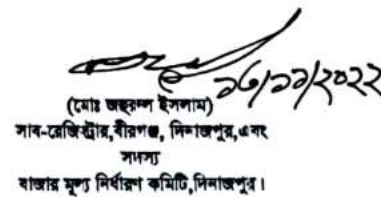 ১৬/১১/২০২২
(মোঃ জহুরুল ইসলাম)
সাব-রেজিস্ট্রার,বীরগঞ্জ, দিনাজপুর,এবং
সদস্য
বাজার মূল্য নির্ধারণ কমিটি,দিনাজপুর।